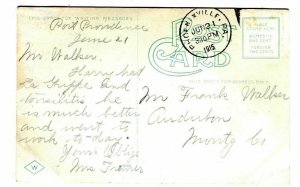 THIS SPACE FOR WRITING MESSAGES
POST CARD
PHOENIXVILLE, PA.
JUN 21
530 PM
1915
TO PLACE
STAMP HERE
DOMESTIC
ONE CENT
FOREIGN
TWO CENTS
THIS SPACE FOR ADDRESS ONLY
Port Providence
June 21
Mr Walker.
Harry had
La Grippe and
tonsilitis he
is much better
and went to
work to day.
Yours Oblige
Mrs
Mr Frank Walker
Audubon
Montg Co
W